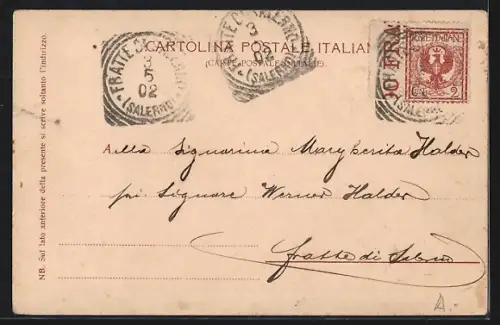 CARTOLINA POSTALE ITALIANA
(CARTE POSTALE D'ITALIE)
FRATTE DI SALERNO
3
5
02
(SALERNO)
FRATTE DI SALERNO
3
02
(SALERNO)
POSTE ITALIANE
2
Alla Signorina Margherita Halder
pei Signore Werner Halder
Fratte di Salerno
NB. Sul lato anteriore della presente si scrive soltanto l'indirizzo.
A.